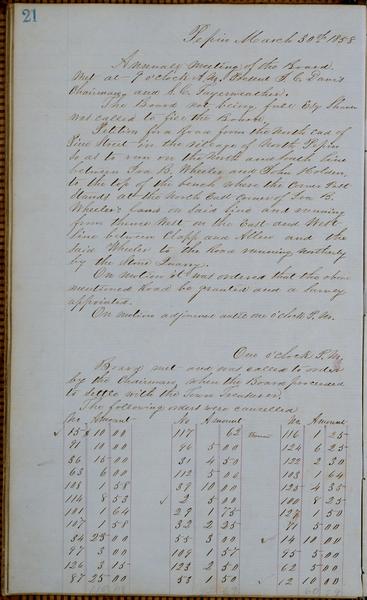 21
Pepin March 30th 1858
Annual Meeting of the Board
Met at 9 o'clock A.M. Present S. C. Davis
Chairman, and L. C. Fayerweather.
The Board not being full Ely
was called to fill the Board,
Petition for a Road from the North end of
Pine Street in the village of North Pepin
so as to run on the North and South line
between Ira B. Wheeler and John Holden,
to the top of the bench where the Corner Post
Stands at the North East corner of Ira B.
Wheeler's land on said line and running
from thence West on the East and West
line between Clapp and Allen and the
said Wheeler to the Road running Northerly
by the Stone Quarry.
On motion it was ordered that the above
mentioned Road be granted and a Survey
appointed.
On motion adjourned until one o'clock P.M.
One o'clock P.M.
Board met and was called to order
by the Chairman, when the Board proceeded
to settle with the Town Treasurer.
The following orders were cancelled
No. Amount No Amount No. Amount
15 $10 00 117 62 116 1 25
91 10 00 96 5 00 124 6 25
36 15 00 31 4 50 122 2 30
63 6 00 112 5 06 103 4 64
108 1 58 39 10 00 125 4 35
114 8 53 2 5 00 100 8 25
101 1 64 29 1 75 127 1 50
107 1 58 32 2 25 71 5 00
34 25 00 55 3 00 14 10 00
97 3 00 109 1 57 95 5 00
126 3 15 123 2 50 62 5 00
87 25 00 53 1 50 12 10 00